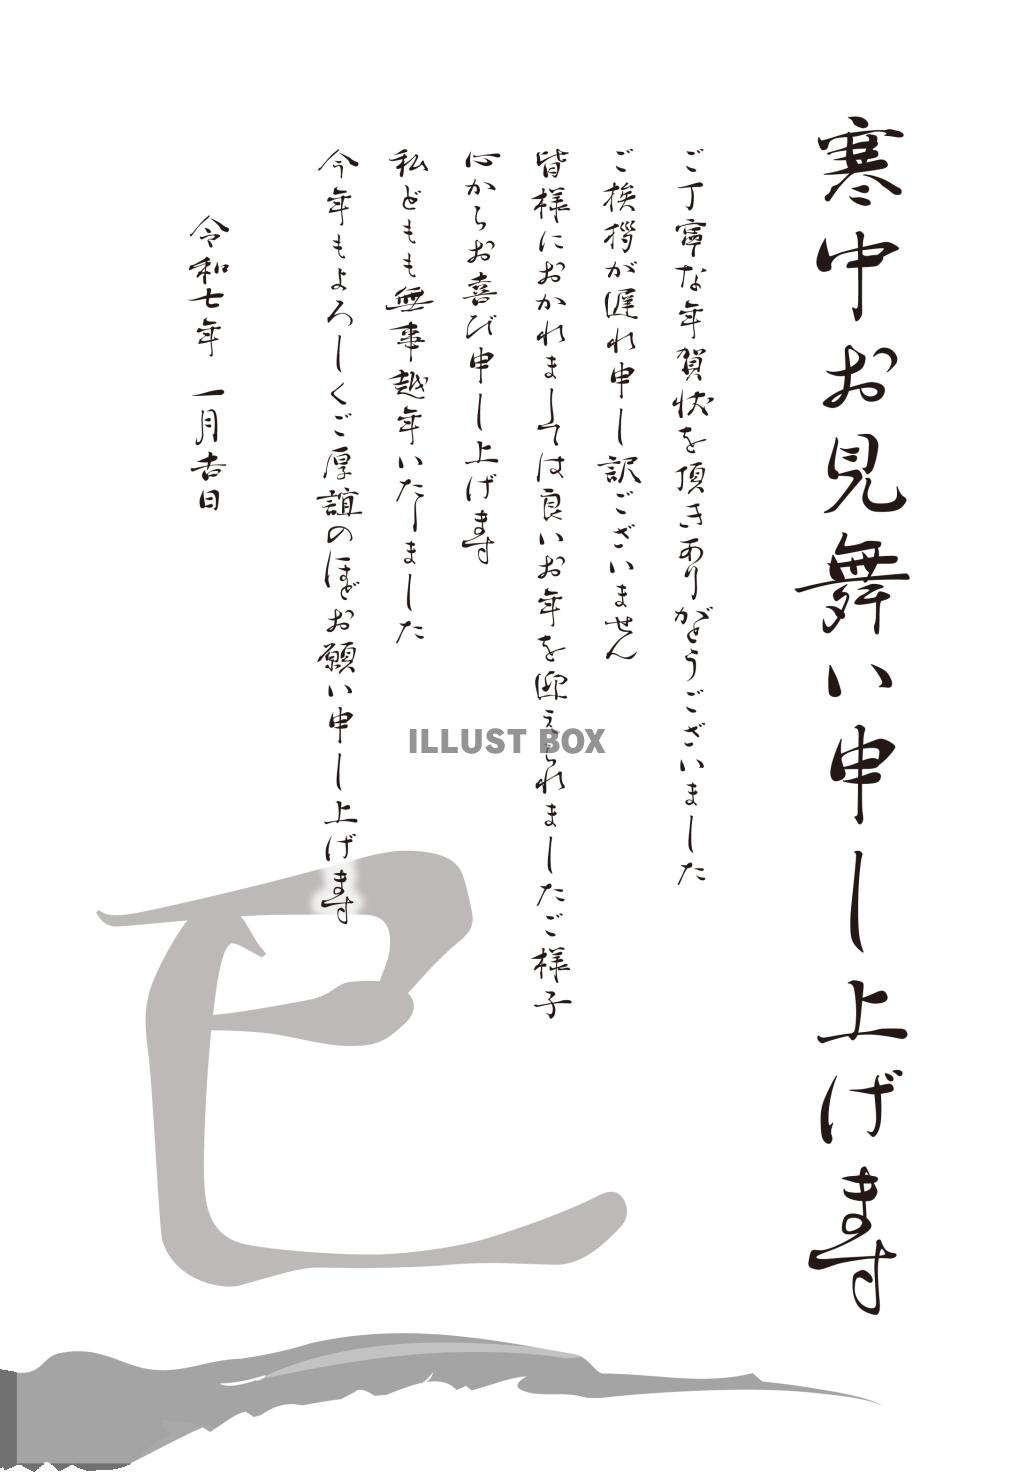 寒中お見舞い申し上げます
ご丁寧な年賀状を頂きありがとうございました
ご挨拶が遅れ申し訳ございません
皆様におかれましては良いお年を迎えられましたご様子
心からお喜び申し上げます
私どもも無事越年いたしました
今年もよろしくご厚誼のほどお願い申し上げます
令和七年 一月吉日
巳
ILLUST BOX